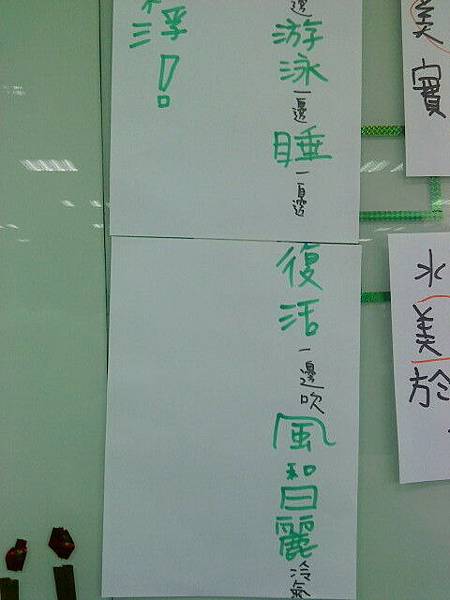 美寶
水美於
邊游泳一邊睡一邊
復活一邊吹風和日麗冷氣
浮！